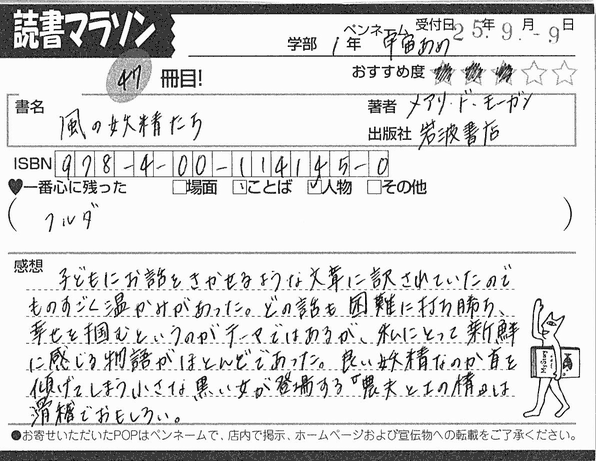 読書マラソン
学部 1年 ペンネーム 宇宙あめ 受付日 25年 9.月 -9日
47冊目!
おすすめ度 ★★★☆☆
書名 風の妖精たち
著者 メアリ・ド・モーガン
出版社 岩波書店
ISBN 978-4-00-114145-0
♥一番心に残った □場面 □ことば ☑人物 □その他
( フルダ )
感想 子どもにお話をきかせるような文章に訳されていたので
ものすごく温かみがあった。どの話も困難に打ち勝ち、
幸せを掴むというのがテーマではあるが、私にとって新鮮
に感じる物語がほとんどであった。良い妖精なのか首を
傾げてしまう小さな黒い女が登場する『農夫と土の精』は
滑稽でおもしろい。
●お寄せいただいたPOPはペンネームで、店内で掲示、ホームページおよび宣伝物への転載をご了承ください。